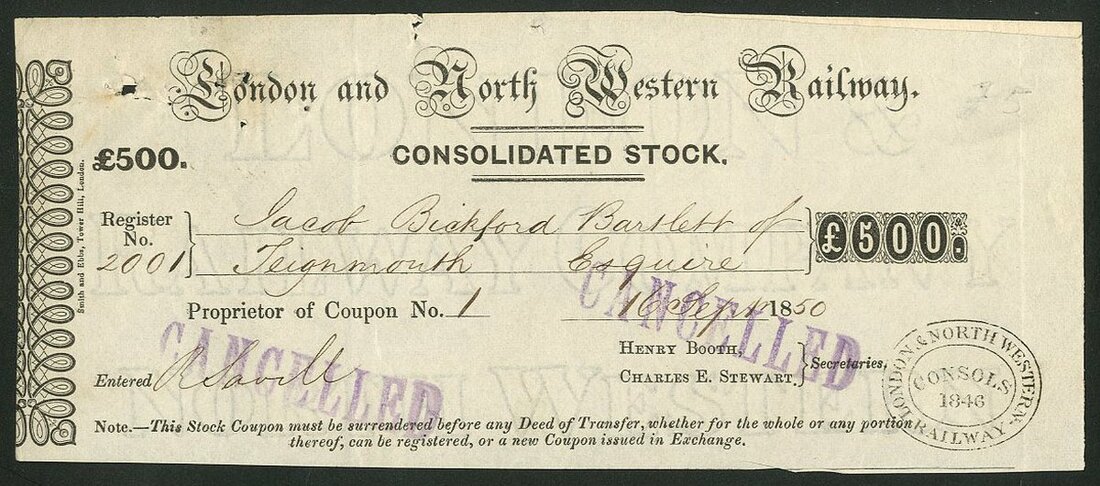 London and North Western Railway.
CONSOLIDATED STOCK.
£500.
Smith and Ebbs, Tower Hill, London.
Register No. 2001
Jacob Bickford Bartlett of
Teignmouth Esquire
£500.
Proprietor of Coupon No. 1 16 Sept 1850
CANCELLED
CANCELLED
HENRY BOOTH,
CHARLES E. STEWART.
Secretaries,
Entered R Savill
LONDON & NORTH WESTERN RAILWAY
CONSOLS
1846
Note.—This Stock Coupon must be surrendered before any Deed of Transfer, whether for the whole or any portion
thereof, can be registered, or a new Coupon issued in Exchange.